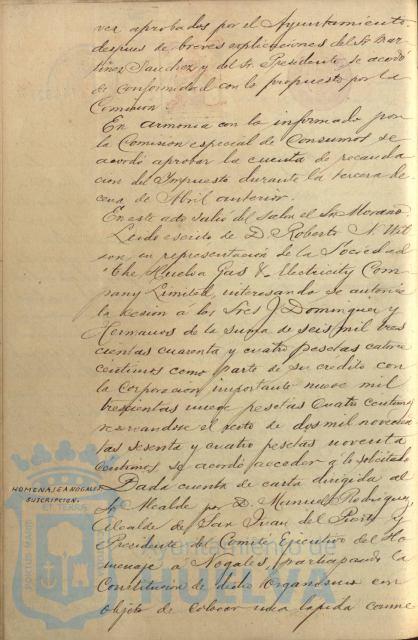 ver aprobados por el Ayuntamiento
despues de breves esplicaciones del Sr. Mar
tinez Sanchez y del Sr. Presidente se acordó
de conformidad con lo propuesto por la
Comision.
En armonia con lo informado por
la Comision especial de Consumos se
acordó aprobar la cuenta de recauda
cion del Impuesto durante la tercera de
cena de Abril anterior.
En este acto salió del Salon el Sr. Morano
Leido escrito de D. Roberto N. Wil
son en representacion de la Sociedad
"The Huelva Gas & Electricity Com
pany Limited, interesando se autorice
la cesion á los Sres J Dominguez y
Hermanos de la suma de seis mil tres
cientas cuarenta y cuatro pesetas catorce
centimos como parte de su credito con
la Corporacion importante nueve mil
trescientas nueve pesetas cuatro centimos
reservandose el resto de dos mil novecien
tas sesenta y cuatro pesetas noventa
centimos, se acordó acceder á lo solicitado
HOMENAJE A NOGALES
SUSCRIPCION.
Dada cuenta de carta dirigida al
Sr. Alcalde por D. Manuel Rodriguez,
Alcalde de San Juan del Puerto y
Presidente del Comité Ejecutivo del Ho
menaje á Nogales, participando la
Constitucion de dicho Organismo con
objeto de colocar una lapida conme
PORTUS MARIS
ET TERRAE
CUSTODIA
Ayuntamiento de
HUELVA